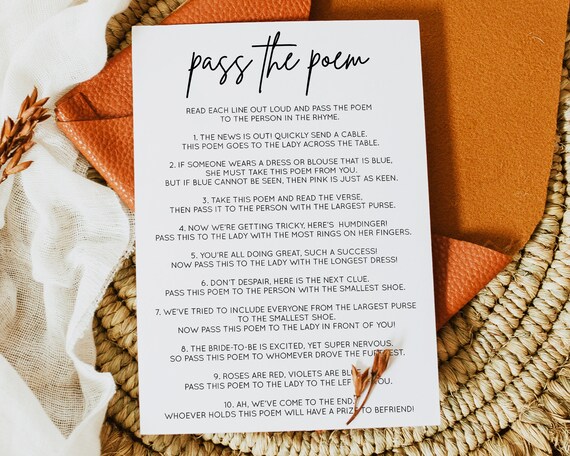 pass the poem
READ EACH LINE OUT LOUD AND PASS THE POEM
TO THE PERSON IN THE RHYME.
1. THE NEWS IS OUT! QUICKLY SEND A CABLE.
THIS POEM GOES TO THE LADY ACROSS THE TABLE.
2. IF SOMEONE WEARS A DRESS OR BLOUSE THAT IS BLUE,
SHE MUST TAKE THIS POEM FROM YOU.
BUT IF BLUE CANNOT BE SEEN, THEN PINK IS JUST AS KEEN.
3. TAKE THIS POEM AND READ THE VERSE,
THEN PASS IT TO THE PERSON WITH THE LARGEST PURSE.
4. NOW WE'RE GETTING TRICKY, HERE'S HUMDINGER!
PASS THIS TO THE LADY WITH THE MOST RINGS ON HER FINGERS.
5. YOU'RE ALL DOING GREAT, SUCH A SUCCESS!
NOW PASS THIS TO THE LADY WITH THE LONGEST DRESS!
6. DON'T DESPAIR, HERE IS THE NEXT CLUE.
PASS THIS POEM TO THE PERSON WITH THE SMALLEST SHOE.
7. WE'VE TRIED TO INCLUDE EVERYONE FROM THE LARGEST PURSE
TO THE SMALLEST SHOE.
NOW PASS THIS POEM TO THE LADY IN FRONT OF YOU!
8. THE BRIDE-TO-BE IS EXCITED, YET SUPER NERVOUS.
SO PASS THIS POEM TO WHOMEVER DROVE THE
9. ROSES ARE RED, VIOLETS ARE
PASS THIS POEM TO THE LADY TO THE
10. AH, WE'VE COME TO THE END.
WHOEVER HOLDS THIS POEM WILL HAVE A PRIZE TO BEFRIEND!